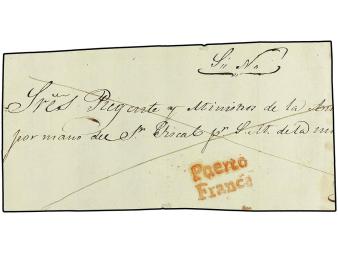 S.ⁿ N.
Sres. Regente y Ministros de la
por mano del Sr. Fiscal pr. S. M. de la
Puerto
Franca